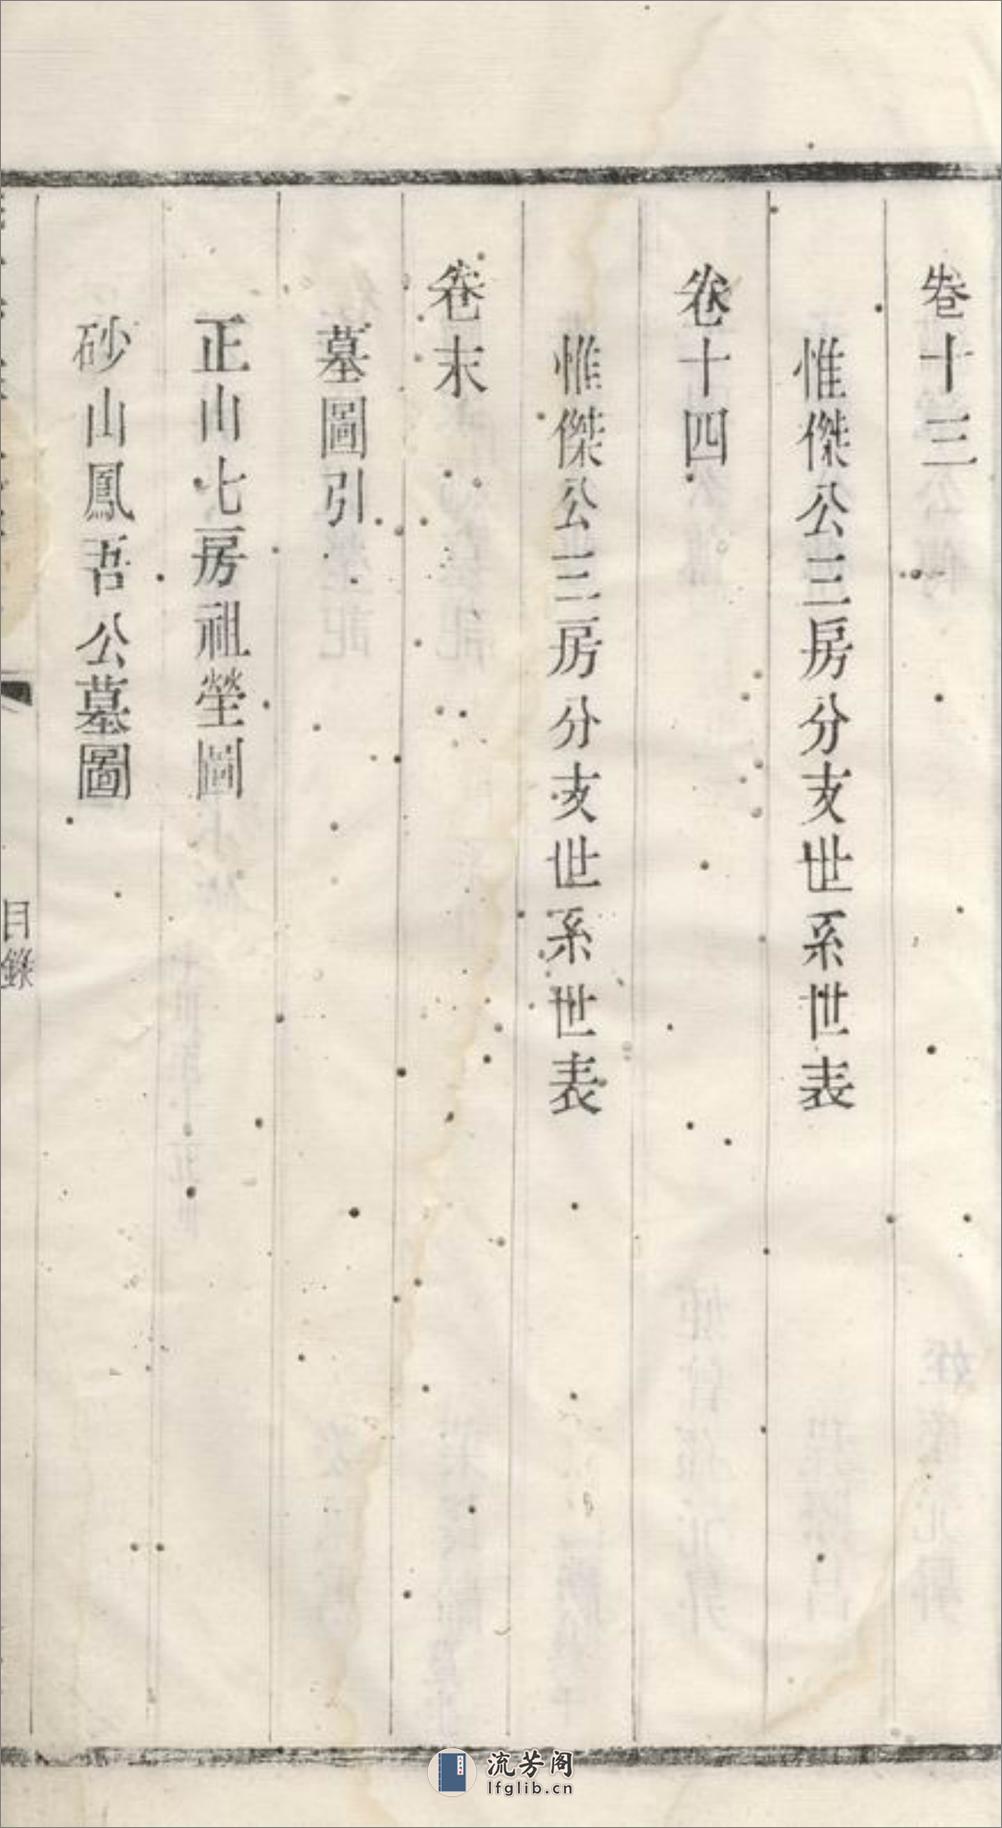 卷十三
惟傑公三房分支世系世表
卷十四
惟傑公三房分支世系世表
卷末
墓圖引
正山七房祖塋圖
砂山鳳吾公墓圖
目錄
流芳阁
lfglib.cn